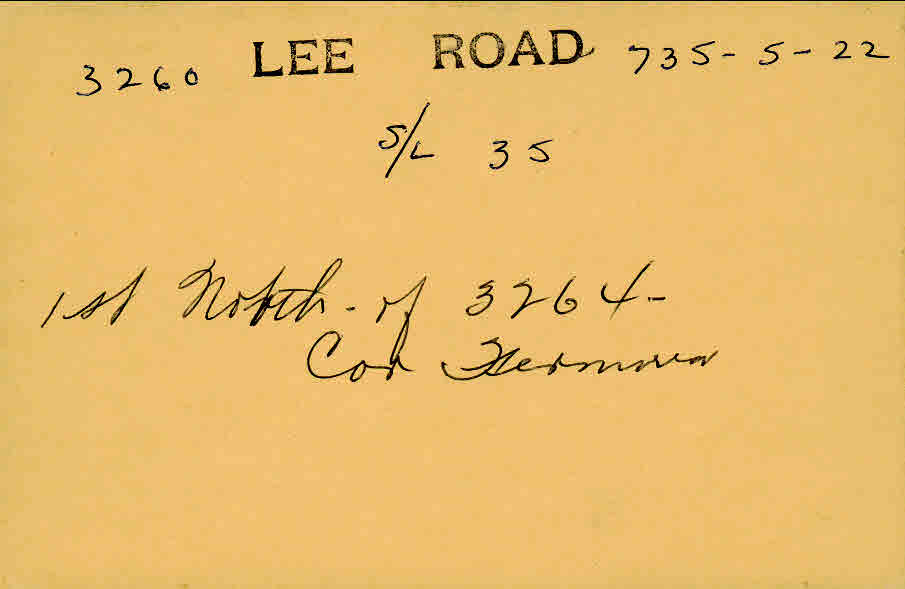 3260 LEE ROAD 735-5-22
S/L 35
1st North - of 3264 -
Cor